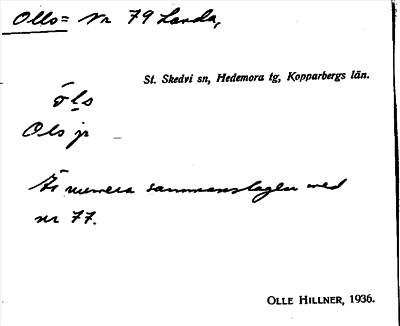 Ollo= nr 79 Landa,
St. Skedvi sn, Hedemora tg, Kopparbergs län.
ōls
Ols jr
Är numera sammanslagen med
nr 77.
OLLE HILLNER, 1936.